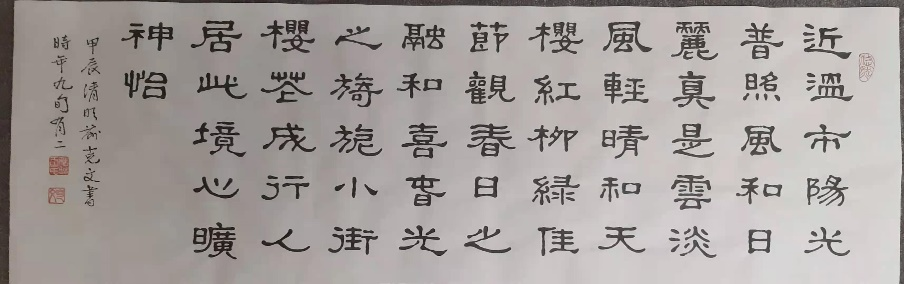 近溫市陽光
普照風和日
麗真是雲淡
風輕晴和天
櫻紅柳緑佳
節觀春日之
融和喜春光
之旖旎小街
櫻花成行人
居此境心曠
神怡
甲辰清明 克文書
時年九旬有二